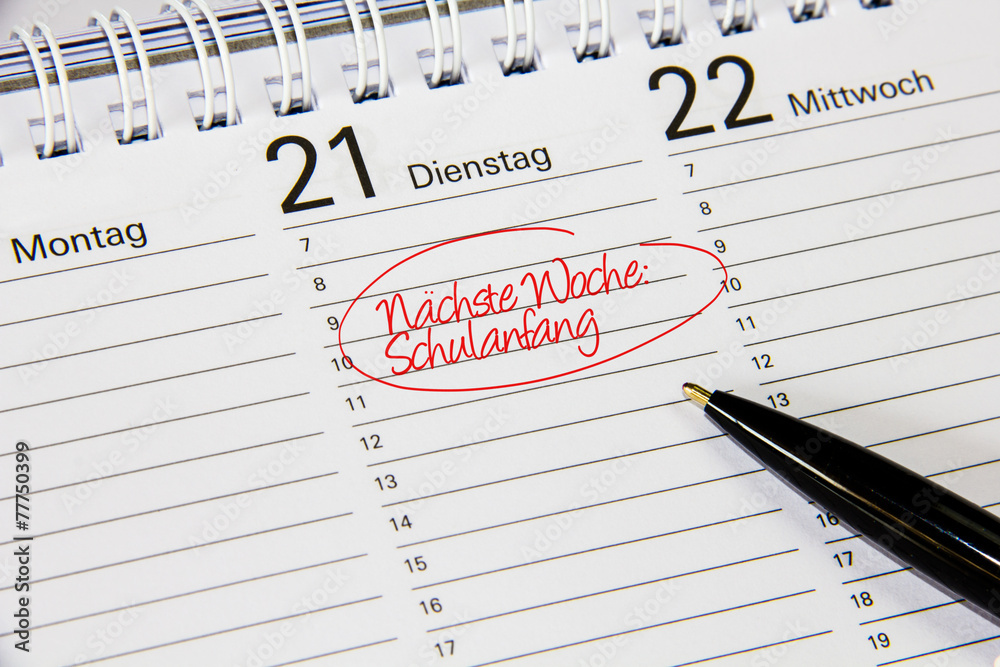 Montag
21 Dienstag
7
8
9
10
11
12
13
14
15
16
17
Nächste Woche:
Schulanfang
22 Mittwoch
7
8
9
10
11
12
13
16
17
18
19
Adobe Stock | #77750399